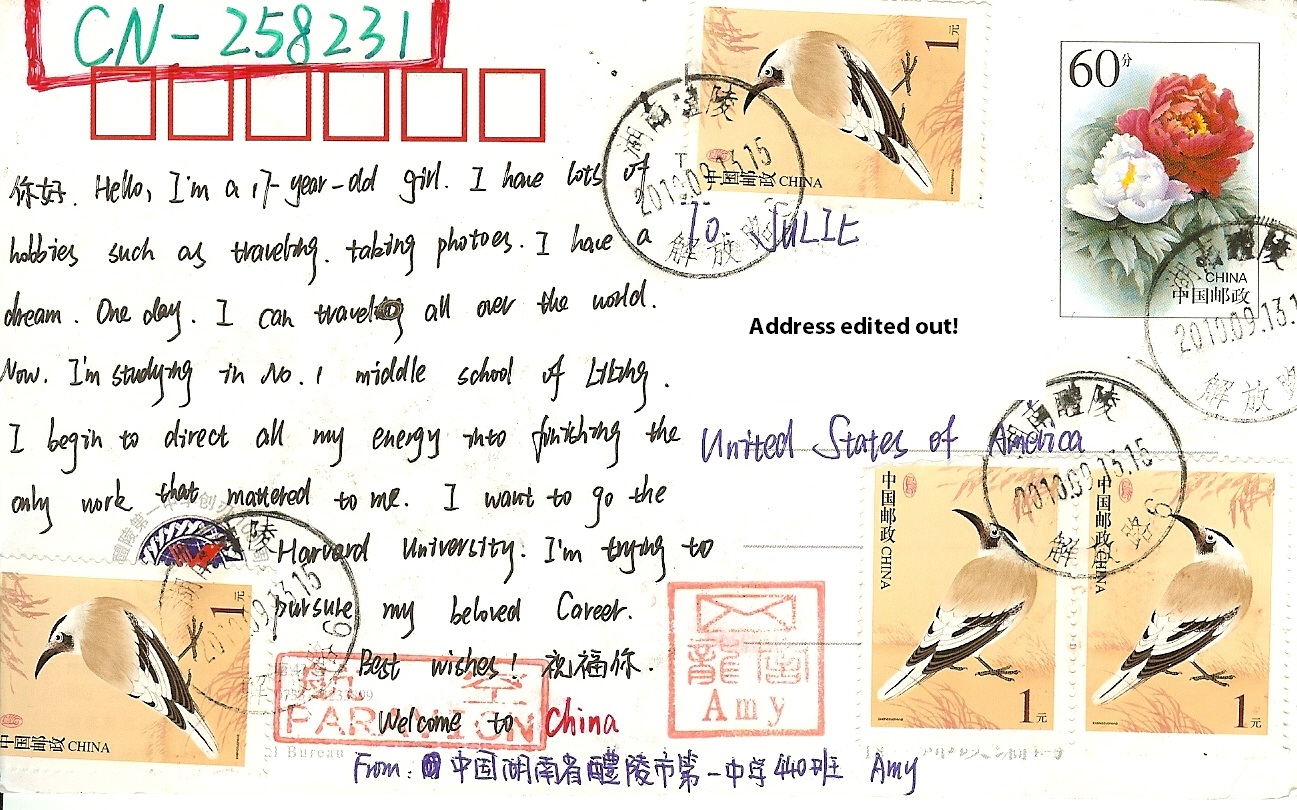 CN-258231
你好. Hello, I'm a 17-year-old girl. I have lots of
hobbies such as traveling. taking photoes. I have a
dream. One day. I can travel all over the world.
Now. I'm studying in No. 1 middle school of Liling.
I begin to direct all my energy into finishing the
only work that mattered to me. I want to go the
Harvard University. I'm trying to
pursure my beloved Career.
Best wishes! 祝福你.
Welcome to China
From: 中国湖南省醴陵市第一中学440班 Amy
To. JULIE
Address edited out!
United States of America
60分
CHINA
中国邮政
1元
中国邮政 CHINA
湖南醴陵
2010.09.13.15
解放路
湖南醴陵
2010.09.13.1
解放路
湖南醴陵
2010.09.13.15
解放路 6
中国邮政 CHINA
1元
中国邮政 CHINA
1元
1元
中国邮政 CHINA
陵
09.13.15
6
醴陵第一中
航空
PAR AVION
龍
Amy
Bureau